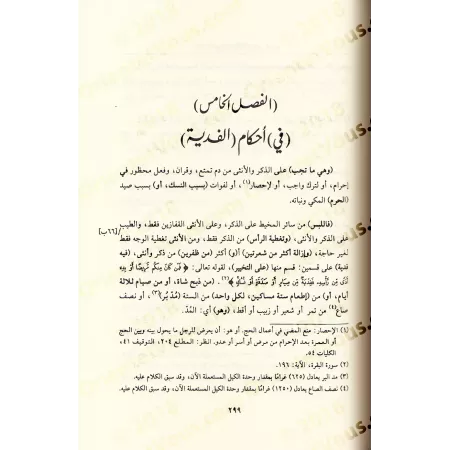 (الفصل الخامس)
(في) أحكام (الفدية)
(وهي ما تجب) على الذكر والأنثى من دم تمتع، وقران، وفعل محظور في
إحرام، أو لترك واجب، أو لإحصار(١)، أو لفوات (بسبب النسك، أو) بسبب صيد
(الحرم) المكي ونباته.
(فاللبس) من سائر المخيط على الذكر، وعلى الأنثى القفازين فقط، والطيب
على الذكر والأنثى، (وتغطية الرأس) من الذكر فقط، ومن الأنثى تغطية الوجه فقط
[٦٦/ب]
لغير حاجة، (وإزالة أكثر من شعرتين) (أو) أكثر (من ظفرين) من ذكر وأنثى، (فيه
فدية) على قسمين: قسم منها (على التخيير)، لقوله تعالى: ﴿فَمَن كَانَ مِنكُم مَّرِيضًا أَوْ بِهِ
أَذًى مِّن رَّأْسِهِ فَفِدْيَةٌ مِّن صِيَامٍ أَوْ صَدَقَةٍ أَوْ نُسُكٍ﴾(٢). (من ذبح شاة، أو من صيام ثلاثة
أيام، أو) من (إطعام ستة مساكين، لكل واحد) من الستة (مُدّ بُر)(٣)، أو نصف
صاع(٤) من تمر أو شعير أو زبيب أو أقط، (وهو) أي: المُدّ.
(١) الإحصار: منع المضي في أعمال الحج. أو هو: أن يعرض للرجل ما يحول بينه وبين الحج
أو العمرة بعد الإحرام من مرض أو أسر أو عدو. انظر: المطلع ٢٠٤، التوقيف ٤١،
الكليات ٥٤.
(٢) سورة البقرة، الآية: ١٩٦.
(٣) مد البر يعادل (٦٢٥) غرامًا بمقدار وحدة الكيل المستعملة الآن، وقد سبق الكلام عليه.
(٤) نصف الصاع يعادل (١٢٥٠) غرامًا بمقدار وحدة الكيل المستعملة الآن، وقد سبق الكلام عليه.
٢٩٩